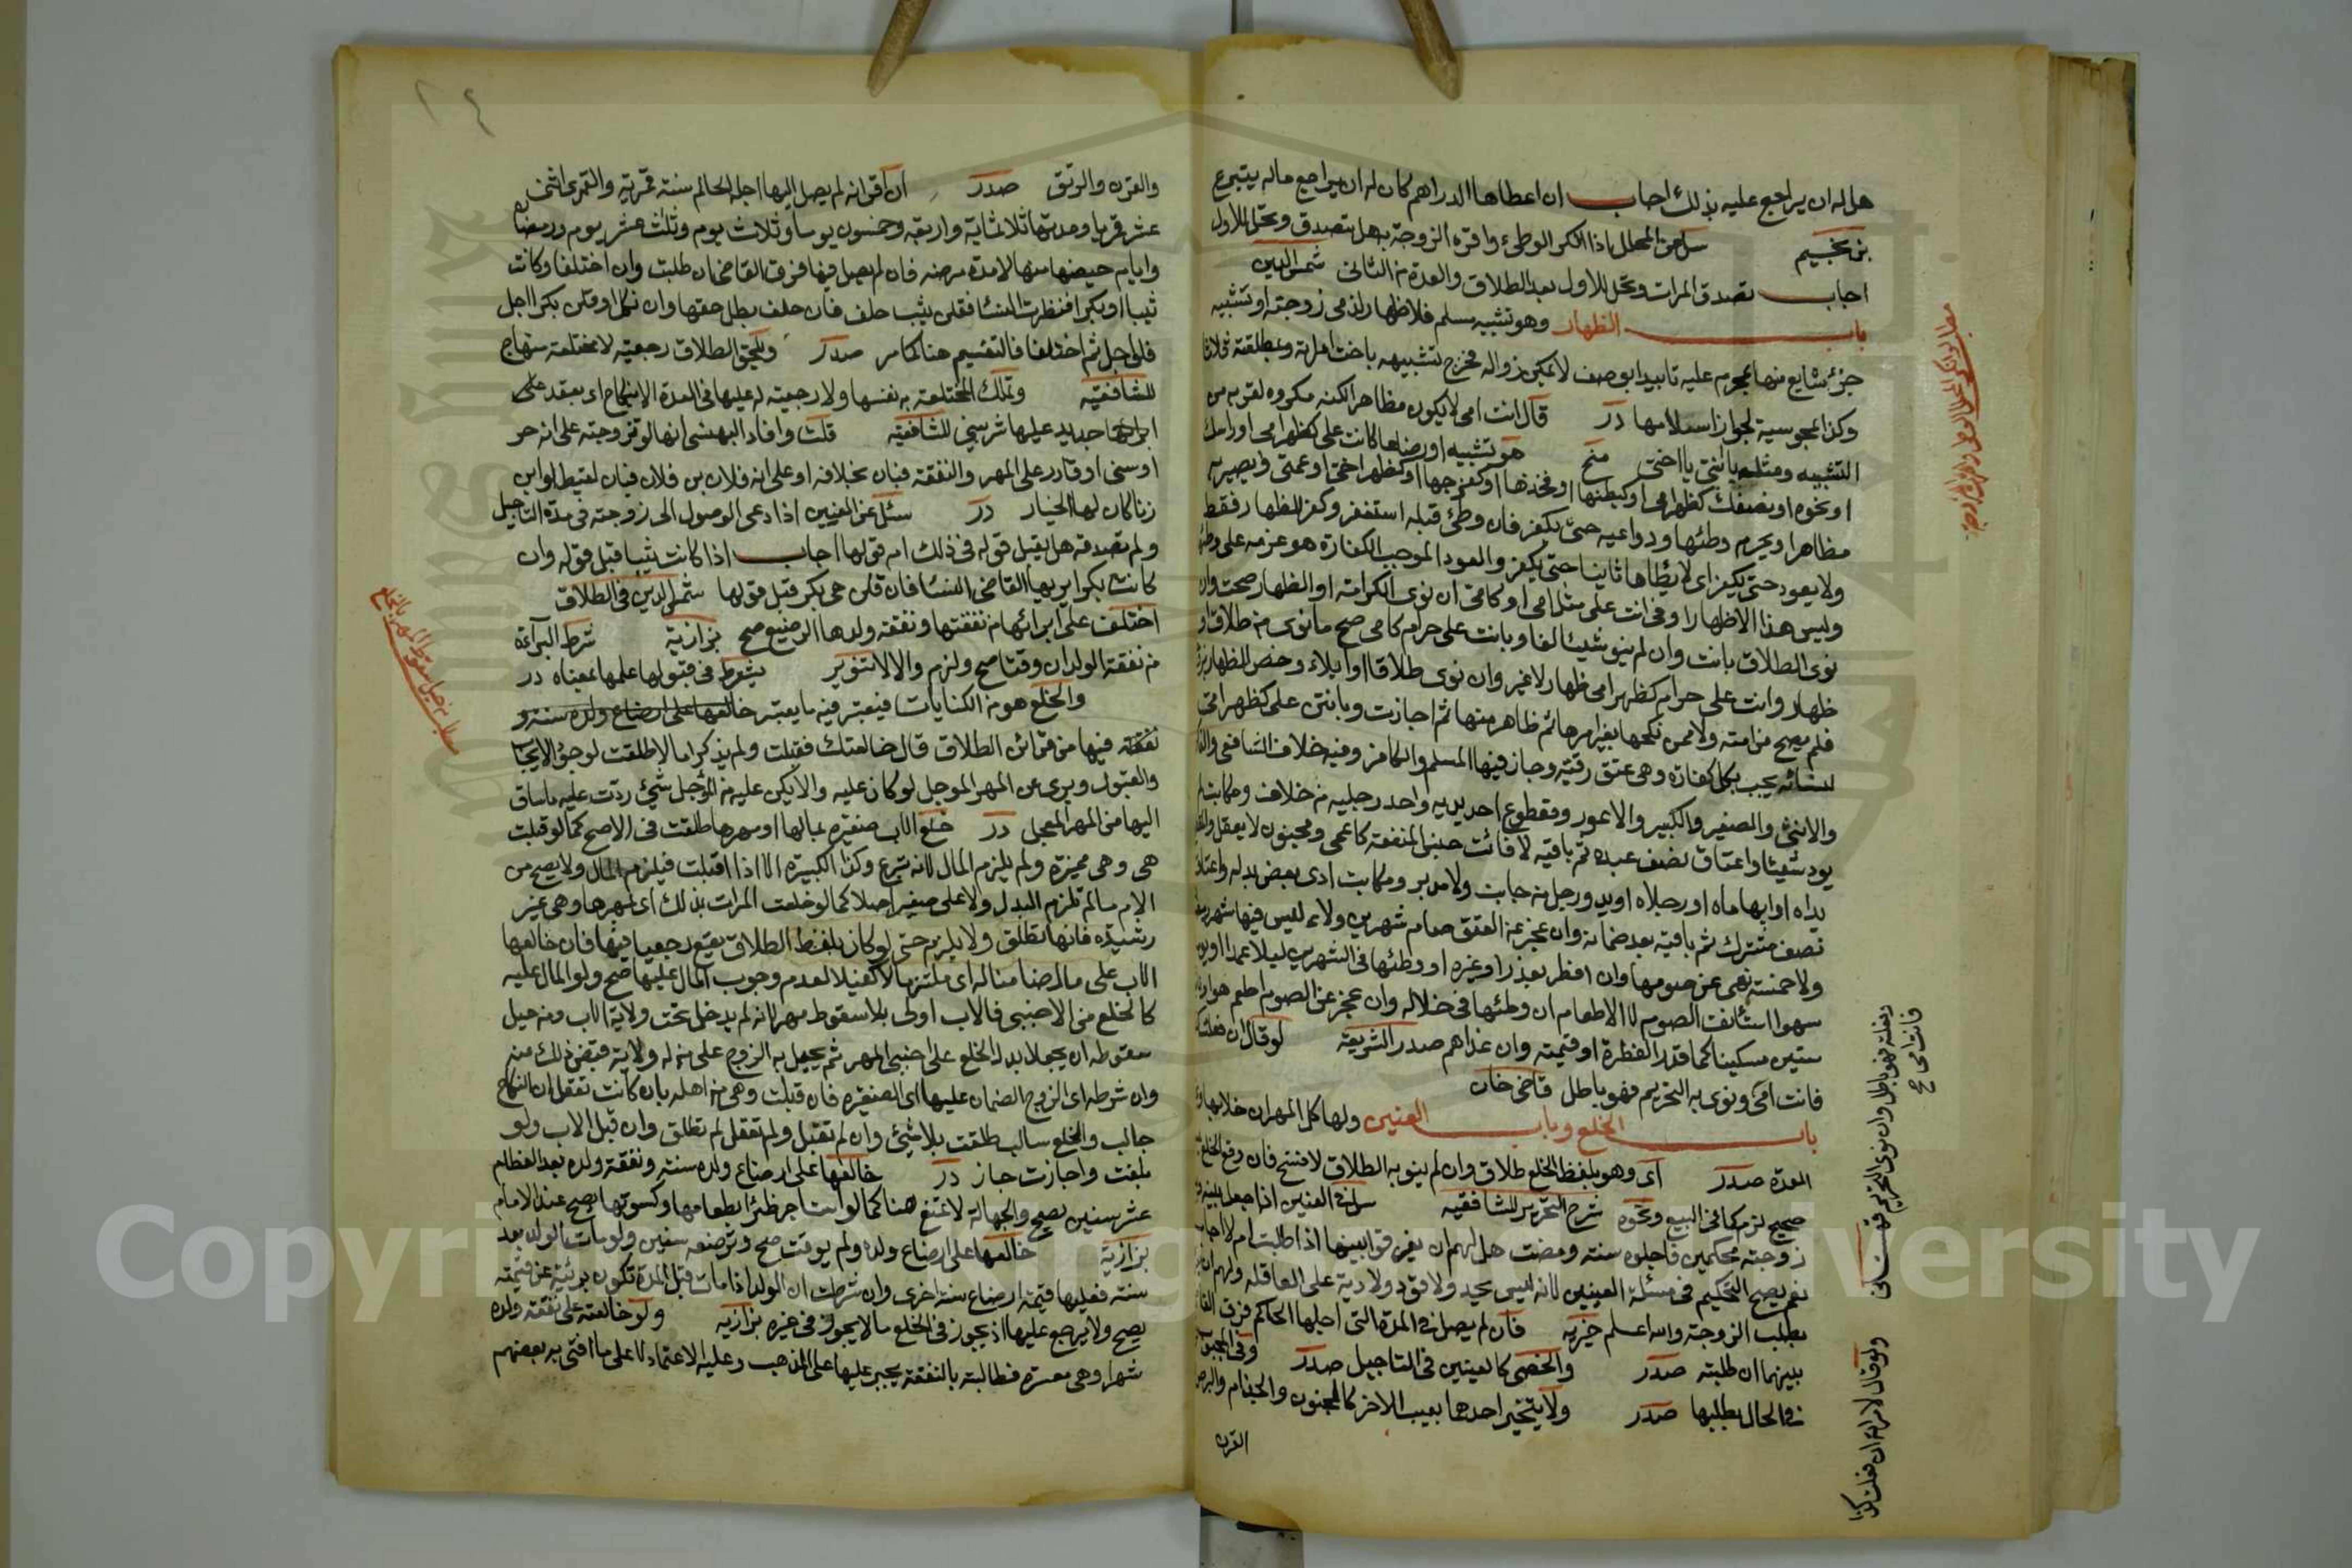 هل له ان يراجع عليه بذلك اجاب ان اعطاها الدراهم كان له ان يراجع ماله يتبرع
بن نجيم سئل عن المحلل اذا انكر الوطئ واقره الزوجة هل تصدق وتحل للاول
اجاب تصدق المرات وتحل للاول بعد الطلاق والعدة من الثانى شمس الدين
باب الظهار وهو تشبيه مسلم فلا ظهار لذمى زوجته او تشبيه
جزء شايع منها بمحرم عليه تابيدا بوصف لا يمكن زواله فخرج تشبيهه باخت امراته وبمطلقته ثلاثا
وكذا المجوسية لجواز اسلامها درر قال انت امى لا يكون مظاهرا لكنه مكروه لقربه من
التشبيه ومثله يا ابنتى يا اختى منح هو تشبيه او رضاعا كانت على كظهر امى او راسك
او نحوه او نصفك كظهر امى او كبطنها او فخذها او كفرجها او كظهر اختى او عمتى ويصير به
مظاهرا ويحرم وطئها ودواعيه حتى يكفر فان وطئ قبله استغفر وكفر للظهار فقط
ولا يعود حتى يكفر اى لا يطاها ثانيا حتى يكفر والعود الموجب الكفارة هو عزمه على وطئها
وليس هذا الا ظهارا وفى انت على مثل امى او كامى ان نوى الكرامة او الظهار صحت وان
نوى الطلاق بانت وان لم ينو شيئا لغا وبانت على حرام كامى صح ما نوى من طلاق او
ظهار وانت على حرام كظهر امى ظهار لا غير وان نوى طلاقا او ايلاء وخص الظهار بزوجته
فلم يصح من امته ولا ممن نكحها بغير امرها ثم ظاهر منها ثم اجازت وبانتن على كظهر امى
لنسائه يجب بكل كفارة وهى عتق رقبة وجاز فيها المسلم والكافر وفيه خلاف الشافعى
والانثى والصغير والكبير والاعور ومقطوع احد يديه واحد رجليه من خلاف ومكاتب لم
يود شيئا واعتاق نصف عبده ثم باقيه لا فائت جنس المنفعة كاعمى ومجنون لا يعقل
يداه او ابهاماه او رجلاه او يد ورجل من جانب ولا مدبر ومكاتب ادى بعض بدله واعتاق
نصف مشترك ثم باقيه بعد ضمانه وان عجز عن العتق صام شهرين ولاء ليس فيها شهر
ولا خمسة نهى عن صومها وان افطر بعذر او غيره او وطئها فى الشهرين ليلا عمدا او يوما
سهوا استأنف الصوم لا الاطعام ان وطئها فى خلاله وان عجز عن الصوم اطعم هو او
ستين مسكينا كما قدر الفطرة او قيمته وان غداهم صدر الشريعة لو قال ان فعلت
فانت امى ونوى به التحريم فهو باطل قاضى خان
باب الخلع وباب العنين ولها كل المهر ان خلا بها
العدة صدر اى وهو بلفظ الخلع طلاق وان لم ينو به الطلاق لا فسخ فان وقع الخلع
صحيح لزم كما فى البيع ونحوه شرح التحرير للشافعيه سئل فى العنين اذا جعل بينه و
زوجته محكمين فاجلوه سنة ومضت هل لهم ان يفرقوا بينهما اذا طلبت ام لا اجاب
نعم يصح التحكيم فى مسئلة العنين لانه ليس بحد ولا قود ولا دية على العاقلة ولهم
بطلب الزوجة والله اعلم خيريه فان لم يصل فى المدة التى اجلها الحاكم فرق
بينهما ان طلبته صدر والخصى كالعنين فى التاجيل صدر وفى المجبوب
فى الحال بطلبها صدر ولا يتخير احدهما بعيب الاخر كالمجنون والجذام والبرص
القرن
مطلب لو انكر المحلل الوطئ واقرته الزوجة
ولو قال لامراته ان فعلت كذا
فانت امى
والقرن والرتق صدر ان اقر انه لم يصل اليها اجله الحاكم سنة قمرية والقمرى اثنى
عشر قمريا ومدتها ثلاثمائة واربعة وخمسون يوما وثلاث يوم وثلث عشر يوم ورمضان
وايام حيضها منها لا مدة مرضه فان لم يصل فيها فرق القاضى ان طلبت وان اختلفا وكانت
ثيبا او بكرا فنظرت النسا فقلن ثيب حلف فان حلف بطل حقها وان نكل او قلن بكر اجل
فلو اجل ثم اختلفا فالتقسيم هنا كما مر صدر ويلحق الطلاق رجعية لا مختلعة منهاج
للشافعية وتملك المختلعة به نفسها ولا رجعية له عليها فى العدة الا بنكاح اى بعقد على
جديد عليها شربينى للشافعيه قلت وافاد البهنسى انها لو تزوجته على انه حر
او سنى او قادر على المهر والنفقة فبان بخلافه او على انه فلان بن فلان فبان لقيط او ابن
زنا كان لها الخيار درر سئل عن العنين اذا دعى الوصول الى زوجته فى مدة التاجيل
ولم تصدقه هل يقبل قوله فى ذلك ام قولها اجاب اذا كانت ثيبا قبل قوله وان
كانت بكرا يريها القاضى النسا فان قلن هى بكر قبل قولها شمس الدين فى الطلاق
اختلفت على ابرائها من نفقتها ونفقة ولدها الرضيع صح بزازية شرط البرآءة
من نفقة الولد ان وقتا صح ولزم والا لا تنوير يشترط فى قبولها علمها بمعناه در
والخلع هو من الكنايات فيعتبر فيه ما يعتبر خالعها على ارضاع ولده سنة و
نفقته فيها من قرائن الطلاق قال خالعتك فقبلت ولم يذكرا مالا طلقت لوجود الايجاب
والقبول وبرى عن المهر الموجل لو كان عليه والا يكن عليه من الموجل شئ ردت عليه ما ساق
اليها من المهر المعجل درر خلع الاب صغيرة بمالها او مهرها طلقت فى الاصح كما لو قبلت
هى وهى مميزة ولم يلزم المال لانه تبرع وكذا الكبيرة الا اذا قبلت فيلزم المال ولا يصح من
الام ما لم تلزم البدل ولا على صغير اصلا كما لو خلعت المرات بذلك اى بمهرها وهى غير
رشيدة فانها تطلق ولا يلزم حتى لو كان بلفظ الطلاق يقع رجعيا فيها فان خالعها
الاب على مال ضامنا له اى ملتزما لا كفيلا لعدم وجوب المال عليها صح ولو المال عليه
كالخلع من الاجنبى فالاب اولى بلا سقوط مهر لانه لم يدخل تحت ولاية الاب ومن حيل
سقوطه ان يجعلا بدل الخلع على اجنبى المهر ثم يحيل به الزوج على من له ولاية قبض ذلك منه
وان شرطه اى الزوج الضمان عليها اى الصغيرة فان قبلت وهى من اهله بان كانت تعقل ان النكاح
جالب والخلع سالب طلقت بلا شئ وان لم تقبل ولم تعقل لم تطلق وان قبل الاب ولو
بلغت واجازت جاز درر خالعها على ارضاع ولده سنة ونفقة ولده بعد الفطام
عشر سنين يصح والجهالة لا تمنع هنا كما لو استاجر ظئرا بطعامها وكسوتها يصح عند الامام
بزازية خالعها على ارضاع ولده ولم يوقت صح وترضعه سنتين ولو مات الولد بعد
سنة فعليها قيمة ارضاع سنة اخرى وان شرطت ان الولد اذا مات قبل المدة تكون برئية عن قيمته
يصح ولا يرجع عليها اذ يجوز فى الخلع ما لا يجوز فى غيره بزازيه ولو خالعته على نفقة ولده
شهرا وهى معسرة فطالبته بالنفقة يجبر عليها على المذهب وعليه الاعتماد لا على ما افتى به بعضهم
Copyright © King Saud University